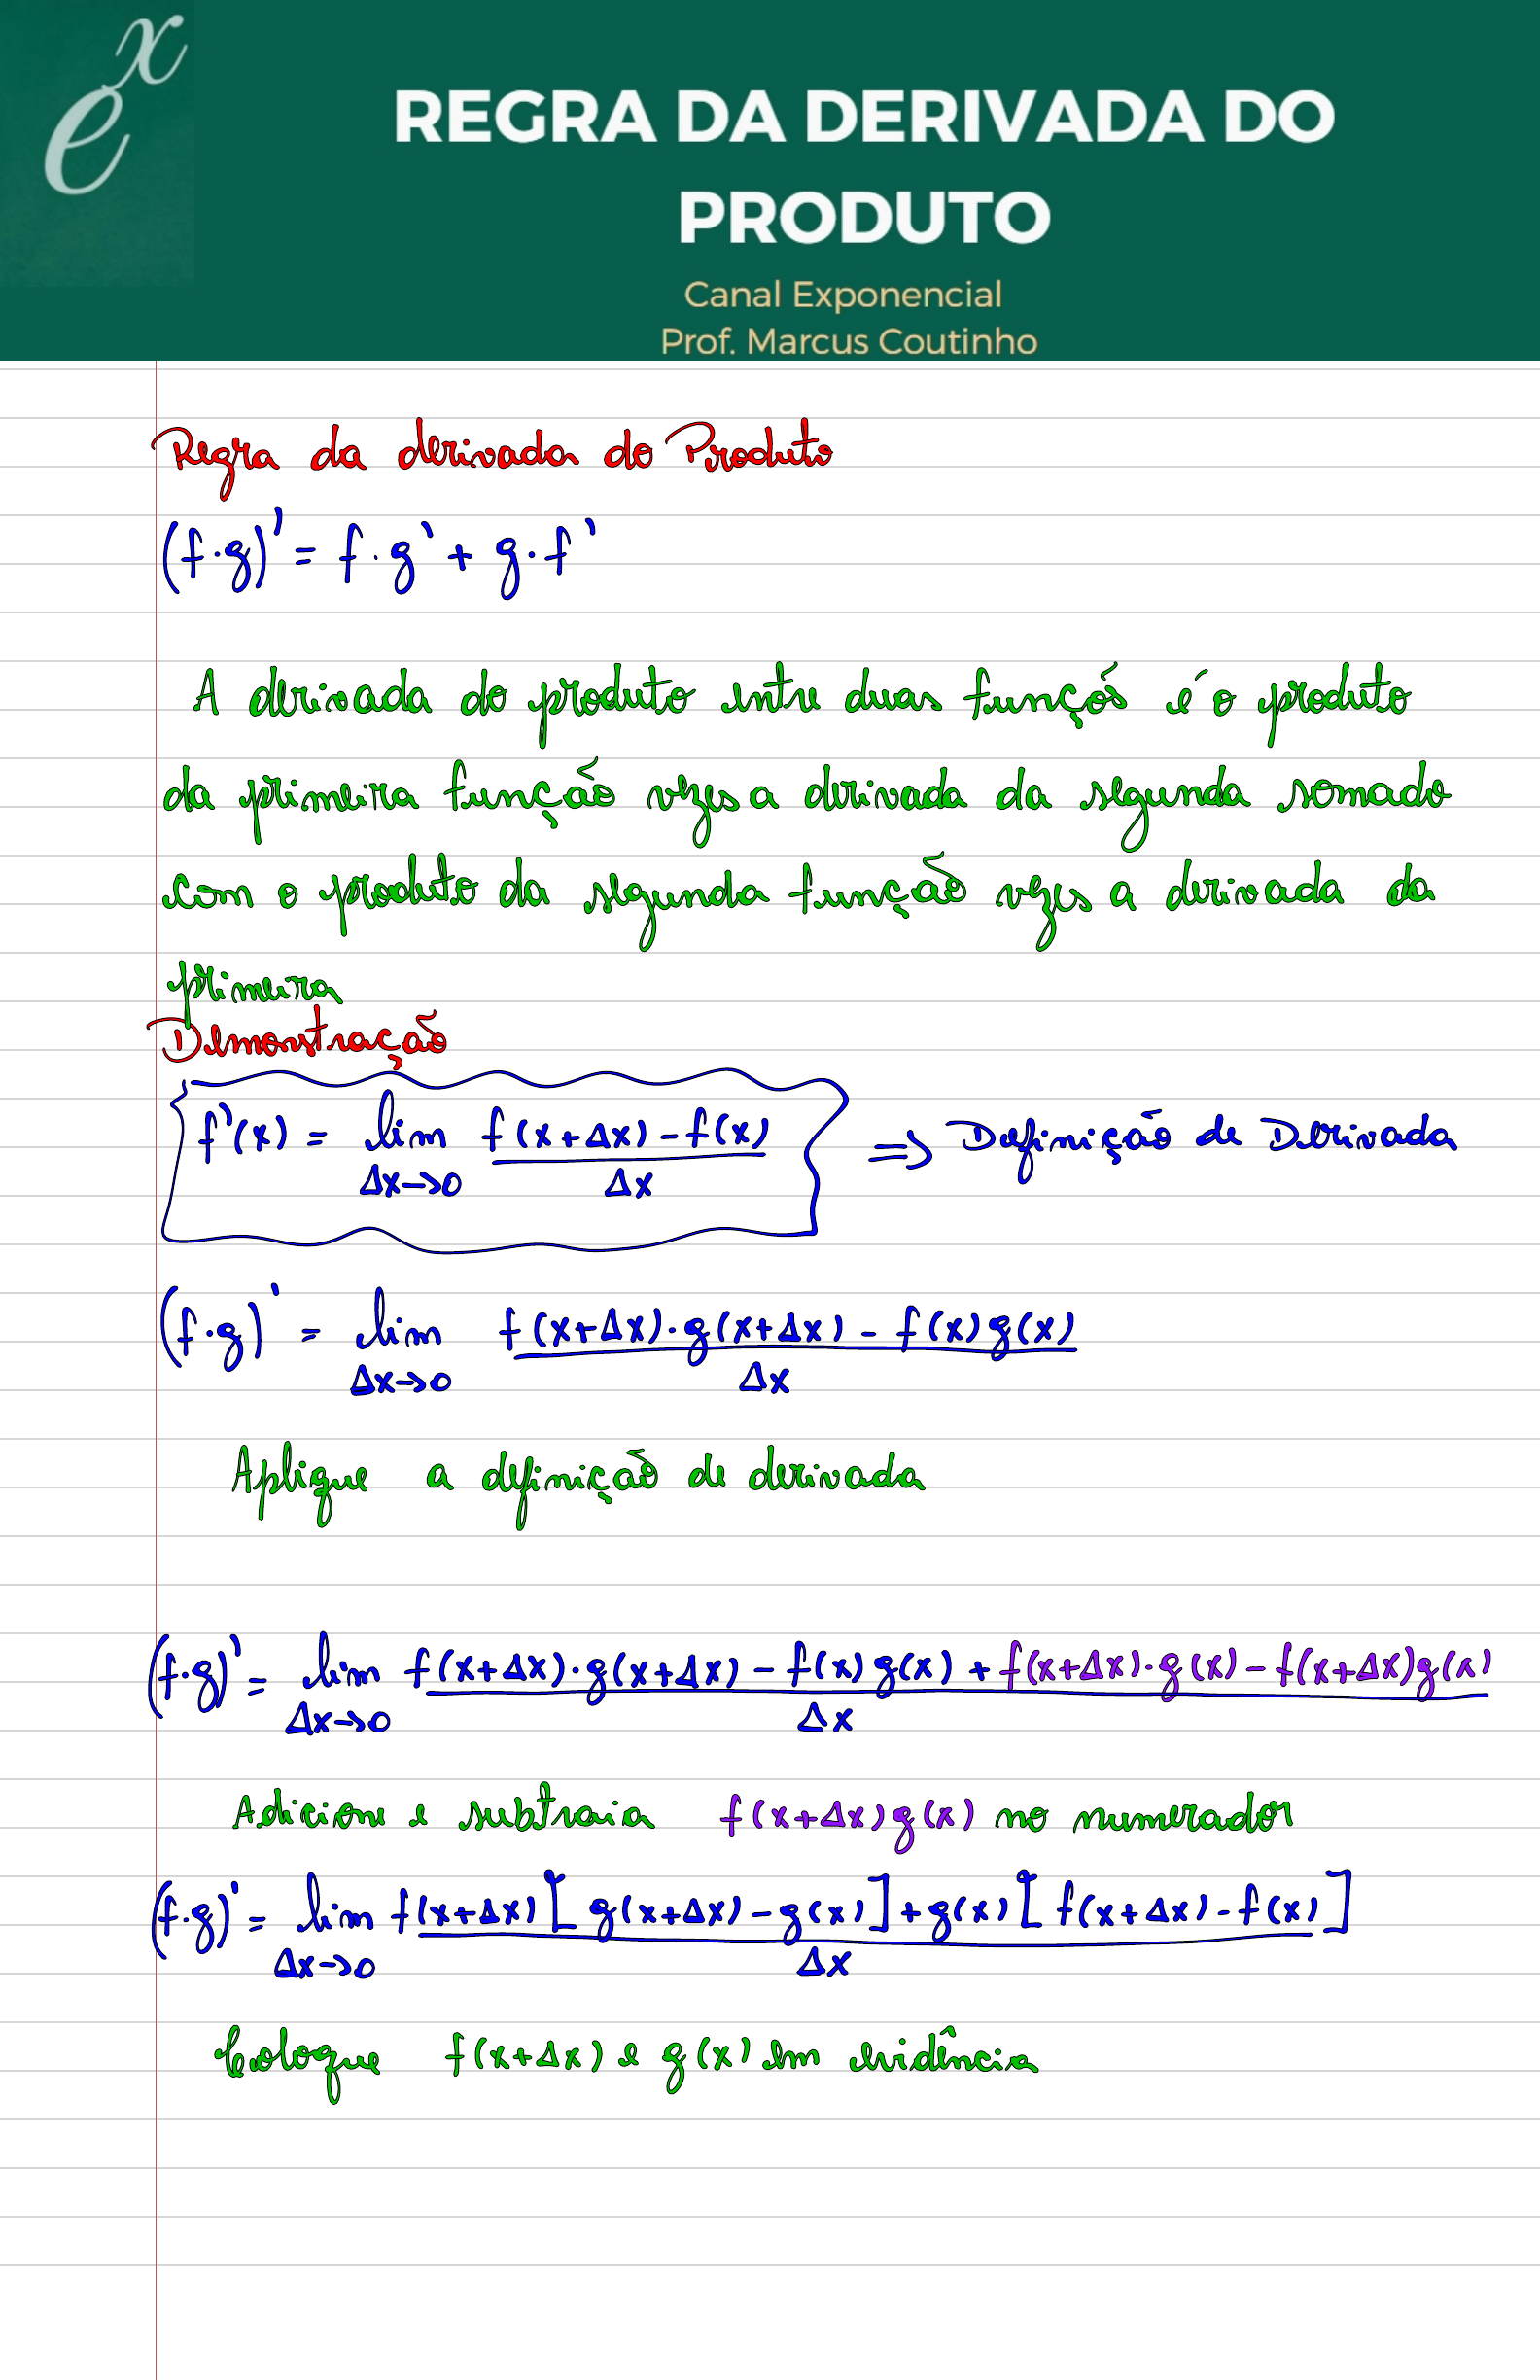 e^x
REGRA DA DERIVADA DO
PRODUTO
Canal Exponencial
Prof. Marcus Coutinho
Regra da derivada do Produto
(f·g)' = f·g' + g·f'
A derivada do produto entre duas funçõs é o produto
da primeira função vezes a derivada da segunda somado
com o produto da segunda função vezes a derivada da
primeira
Demonstração
f'(x) = lim f(x+Δx) - f(x) => Definição de Derivada
Δx→0 Δx
(f·g)' = lim f(x+Δx)·g(x+Δx) - f(x)g(x)
Δx→0 Δx
Aplique a definição de derivada
(f·g)' = lim f(x+Δx)·g(x+Δx) - f(x)g(x) + f(x+Δx)·g(x) - f(x+Δx)g(x)
Δx→0 Δx
Adicione e subtraia f(x+Δx)g(x) no numerador
(f·g)' = lim f(x+Δx)[g(x+Δx) - g(x)] + g(x)[f(x+Δx) - f(x)]
Δx→0 Δx
Coloque f(x+Δx) e g(x) em evidência